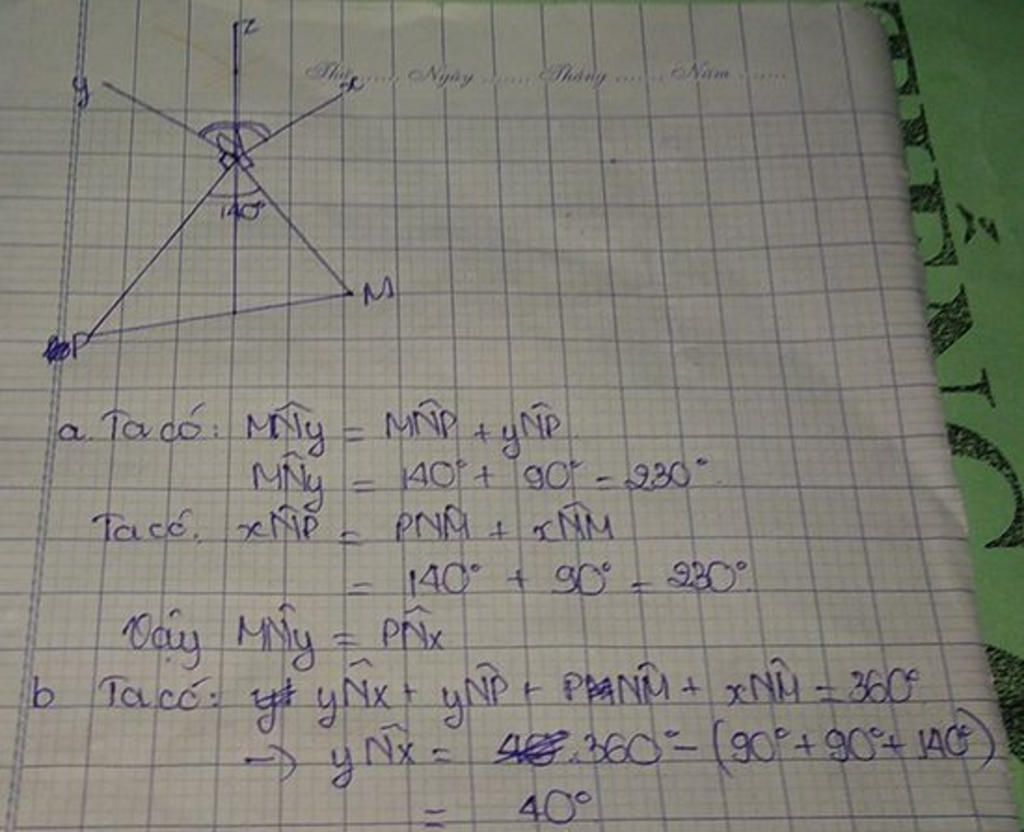 z
y
x
Thứ ....... Ngày ....... Tháng ....... Năm .......
140°
M
P
a. Ta có: MN̂y = MN̂P + yN̂P
MN̂y = 140° + 90° = 230°
Ta có: xN̂P = PNM̂ + xN̂M
= 140° + 90° = 230°
Vậy MN̂y = PN̂x
b Ta có: yN̂x + yN̂P + PNM̂ + xNM̂ = 360°
→ yN̂x = 360° - (90° + 90° + 140°)
= 40°